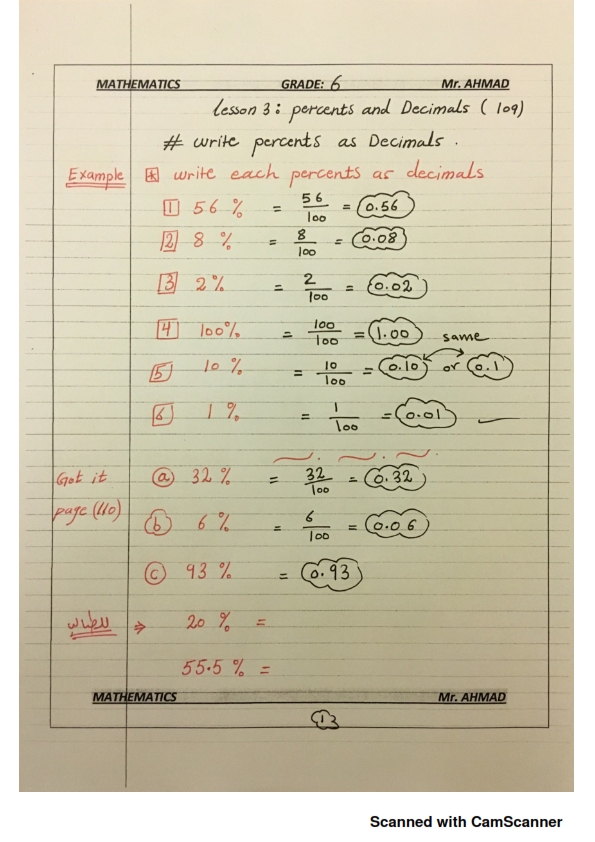 MATHEMATICS GRADE: 6 Mr. AHMAD
Lesson 3: percents and Decimals (109)
# write percents as Decimals.
Example * write each percents as decimals
1 56 % = 56/100 = 0.56
2 8 % = 8/100 = 0.08
3 2 % = 2/100 = 0.02
4 100% = 100/100 = 1.00
same
5 10 % = 10/100 = 0.10 or 0.1
6 1 % = 1/100 = 0.01
Got it a 32 % = 32/100 = 0.32
page (110) b 6 % = 6/100 = 0.06
c 93 % = 0.93
⇒ 20 % =
55.5 % =
MATHEMATICS Mr. AHMAD
13
Scanned with CamScanner